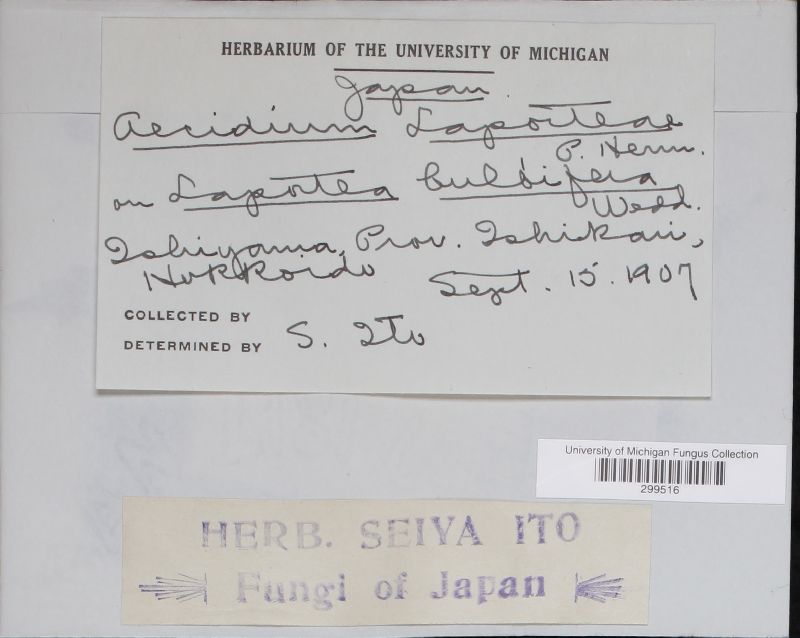 HERBARIUM OF THE UNIVERSITY OF MICHIGAN
Japan
Aecidium Laporteae
P. Henn.
on Laportea bulbifera
Wedd.
Ishiyama, Prov. Ishikari,
Hokkaido Sept. 15. 1907
COLLECTED BY
DETERMINED BY S. Ito
University of Michigan Fungus Collection
299516
HERB. SEIYA ITO
Fungi of Japan